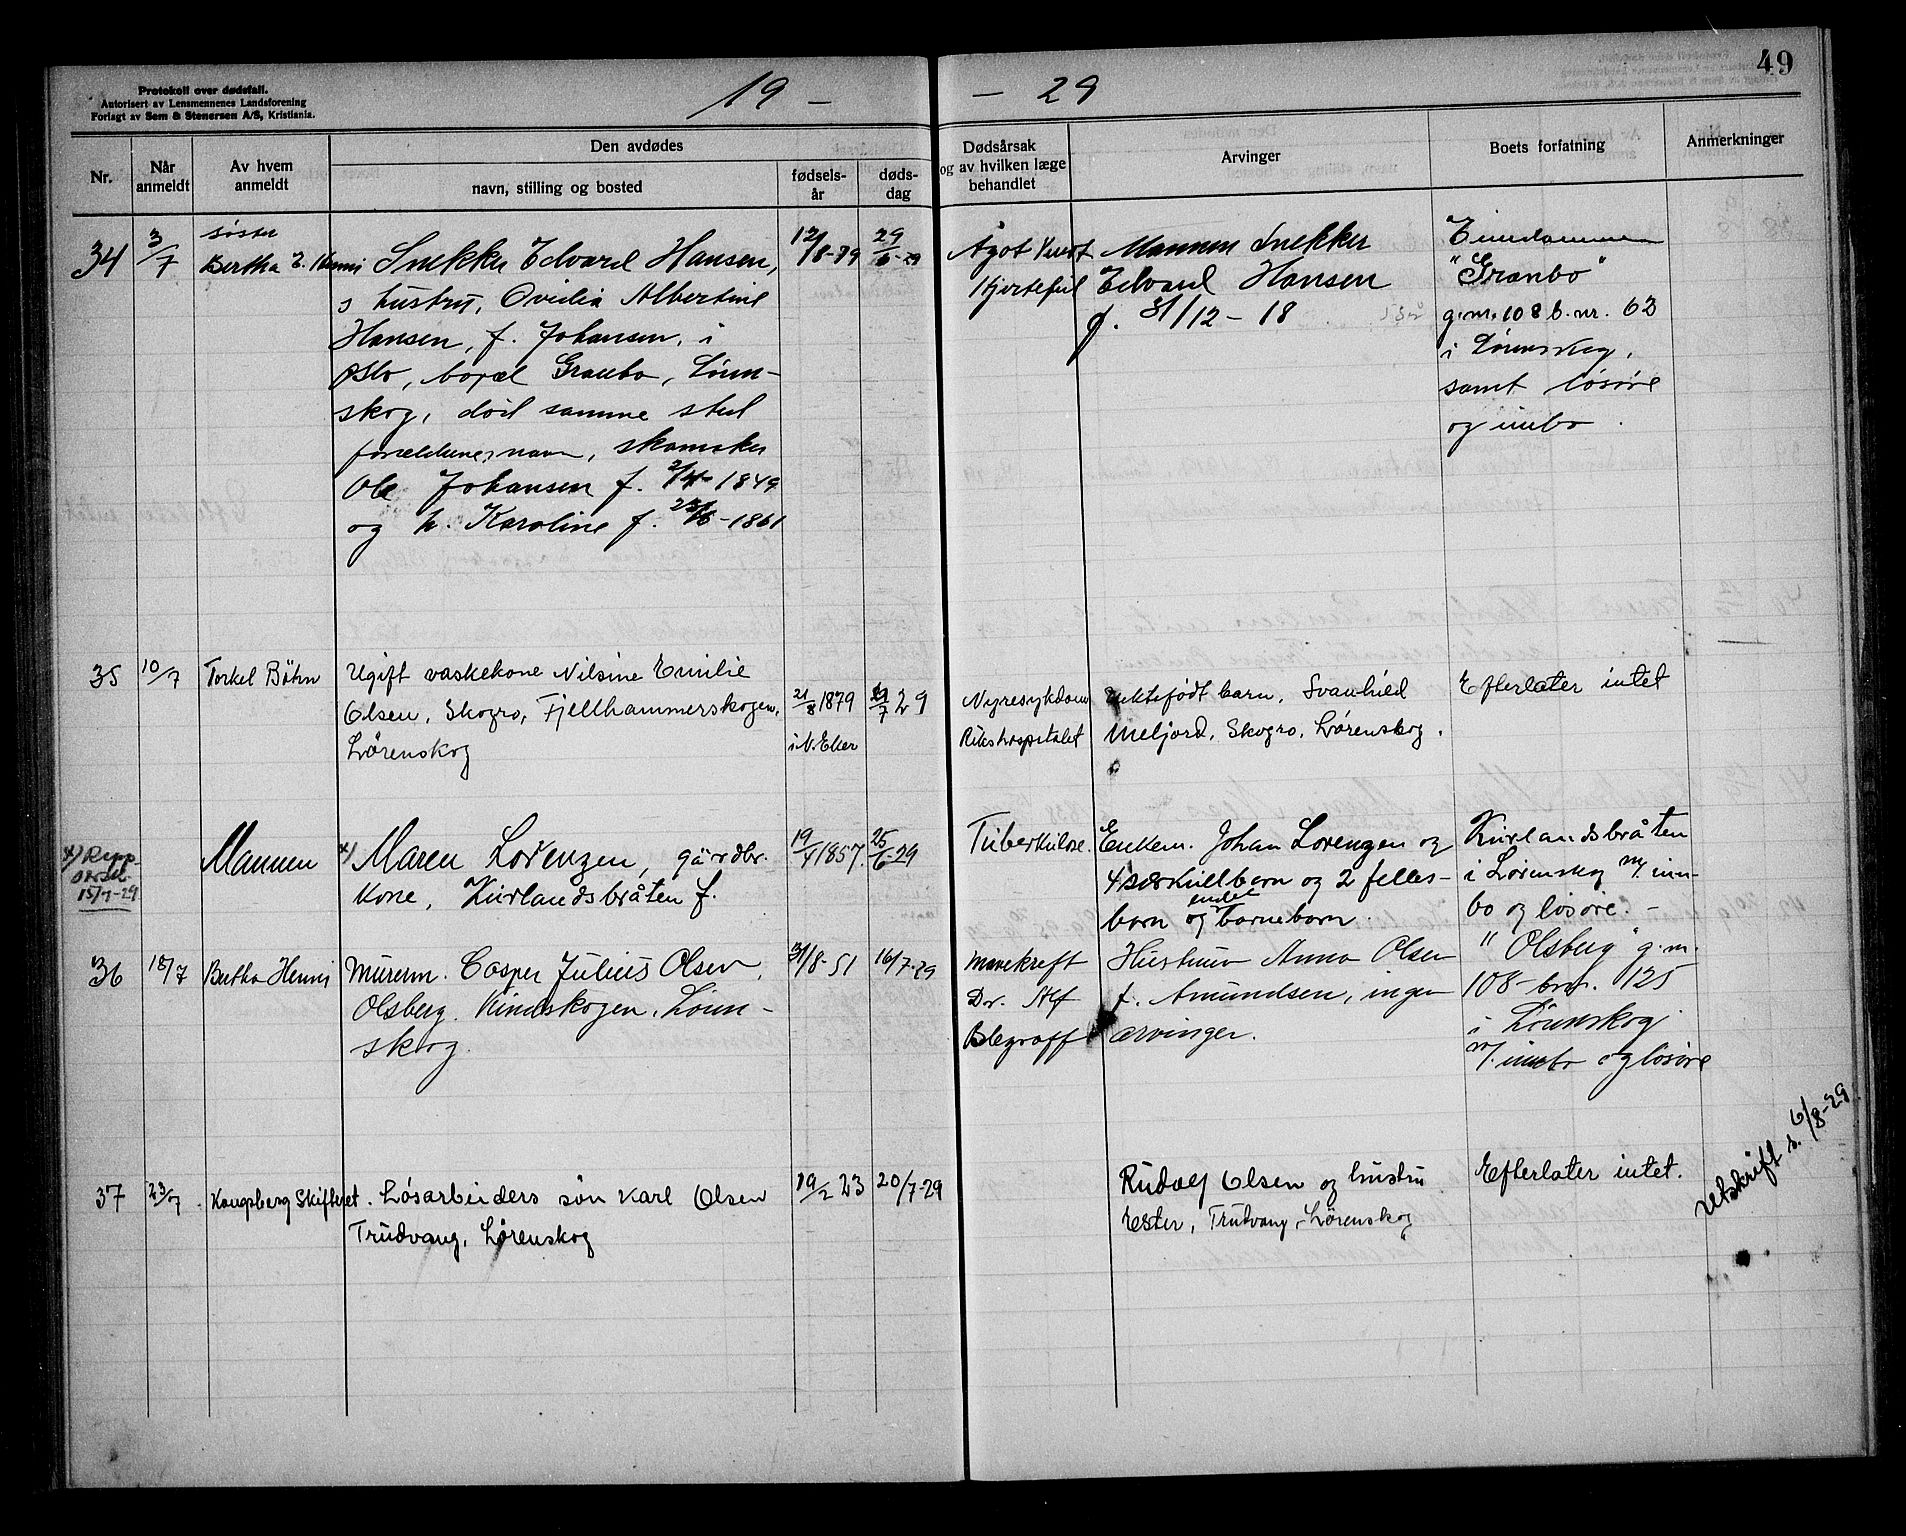 49
Protokoll over dødsfall.
Autorisert av Lensmennenes Landsforening
Forlagt av Sem & Stenersen A/S, Kristiania.
19 - - 29
Nr.
Når anmeldt
Av hvem anmeldt
Den avdødes
navn, stilling og bosted
fødsels-år
døds-dag
Dødsårsak og av hvilken læge behandlet
Arvinger
Boets forfatning
Anmerkninger
34
3/7
søster
Bertha E. Henni
Snekker Edvard Hansen,
s hustru, Ovilia Albertine
Hansen, f. Johansen, i
Oslo, bopæl Granbo, Løren-
skog, død samme sted
forældrenes navn, skomaker
Ole Johansen f. 1849
og h. Karoline f. 1861
12/8-79
29/6-29
Hjertefeil
Mannen Snekker
Edvard Hansen
f. 31/12 - 18
Eiendommen
"Granbo"
g.nr. 108 b.nr. 63
i Lørenskog,
samt løsøre
og innbo.
35
10/7
Torkel Bøhn
Ugift vaskekone Nilsine Emilie
Olsen, Skogro, Fjellhammerskogen,
Lørenskog
21/8 1879
i N. Eker
/7 29
Nyresykdom
Rikshospitalet
Uektefødt barn, Svanhild
Meljord, Skogro, Lørenskog.
Efterlater intet
x)
15/7-29
Mannen
x) Maren Lorenzen, gårdbr.
kone, Kurlandsbråten f.
19/4 1857.
25/6-29
Tuberkulose.
Enkem. Johan Lorenzen og
4 særkullbarn og 2 felles-
barn og barnebarn.
Kurlandsbråten
i Lørenskog m/ inn-
bo og løsøre. -
36
18/7
Bertha Henni
Murerm. Casper Julius Olsen,
Olsberg. Løren-
skog.
31/8-51
16/7-29
Mavekreft
Dr. Alf
Blegraff
Hustruen Anna Olsen
f. Amundsen, ingen
arvinger.
"Olsberg" g.nr.
108 - bnr. 125
i Lørenskog
m/. innbo og løsøre
37
23/7
Kongsberg Skifteret.
Løsarbeiders søn Karl Olsen
Trudvang, Lørenskog
19/2 23
20/7-29
Rudolf Olsen og hustru
Ester, Trudvang, Lørenskog
Efterlater intet.
Utskrift s. 6/8-29